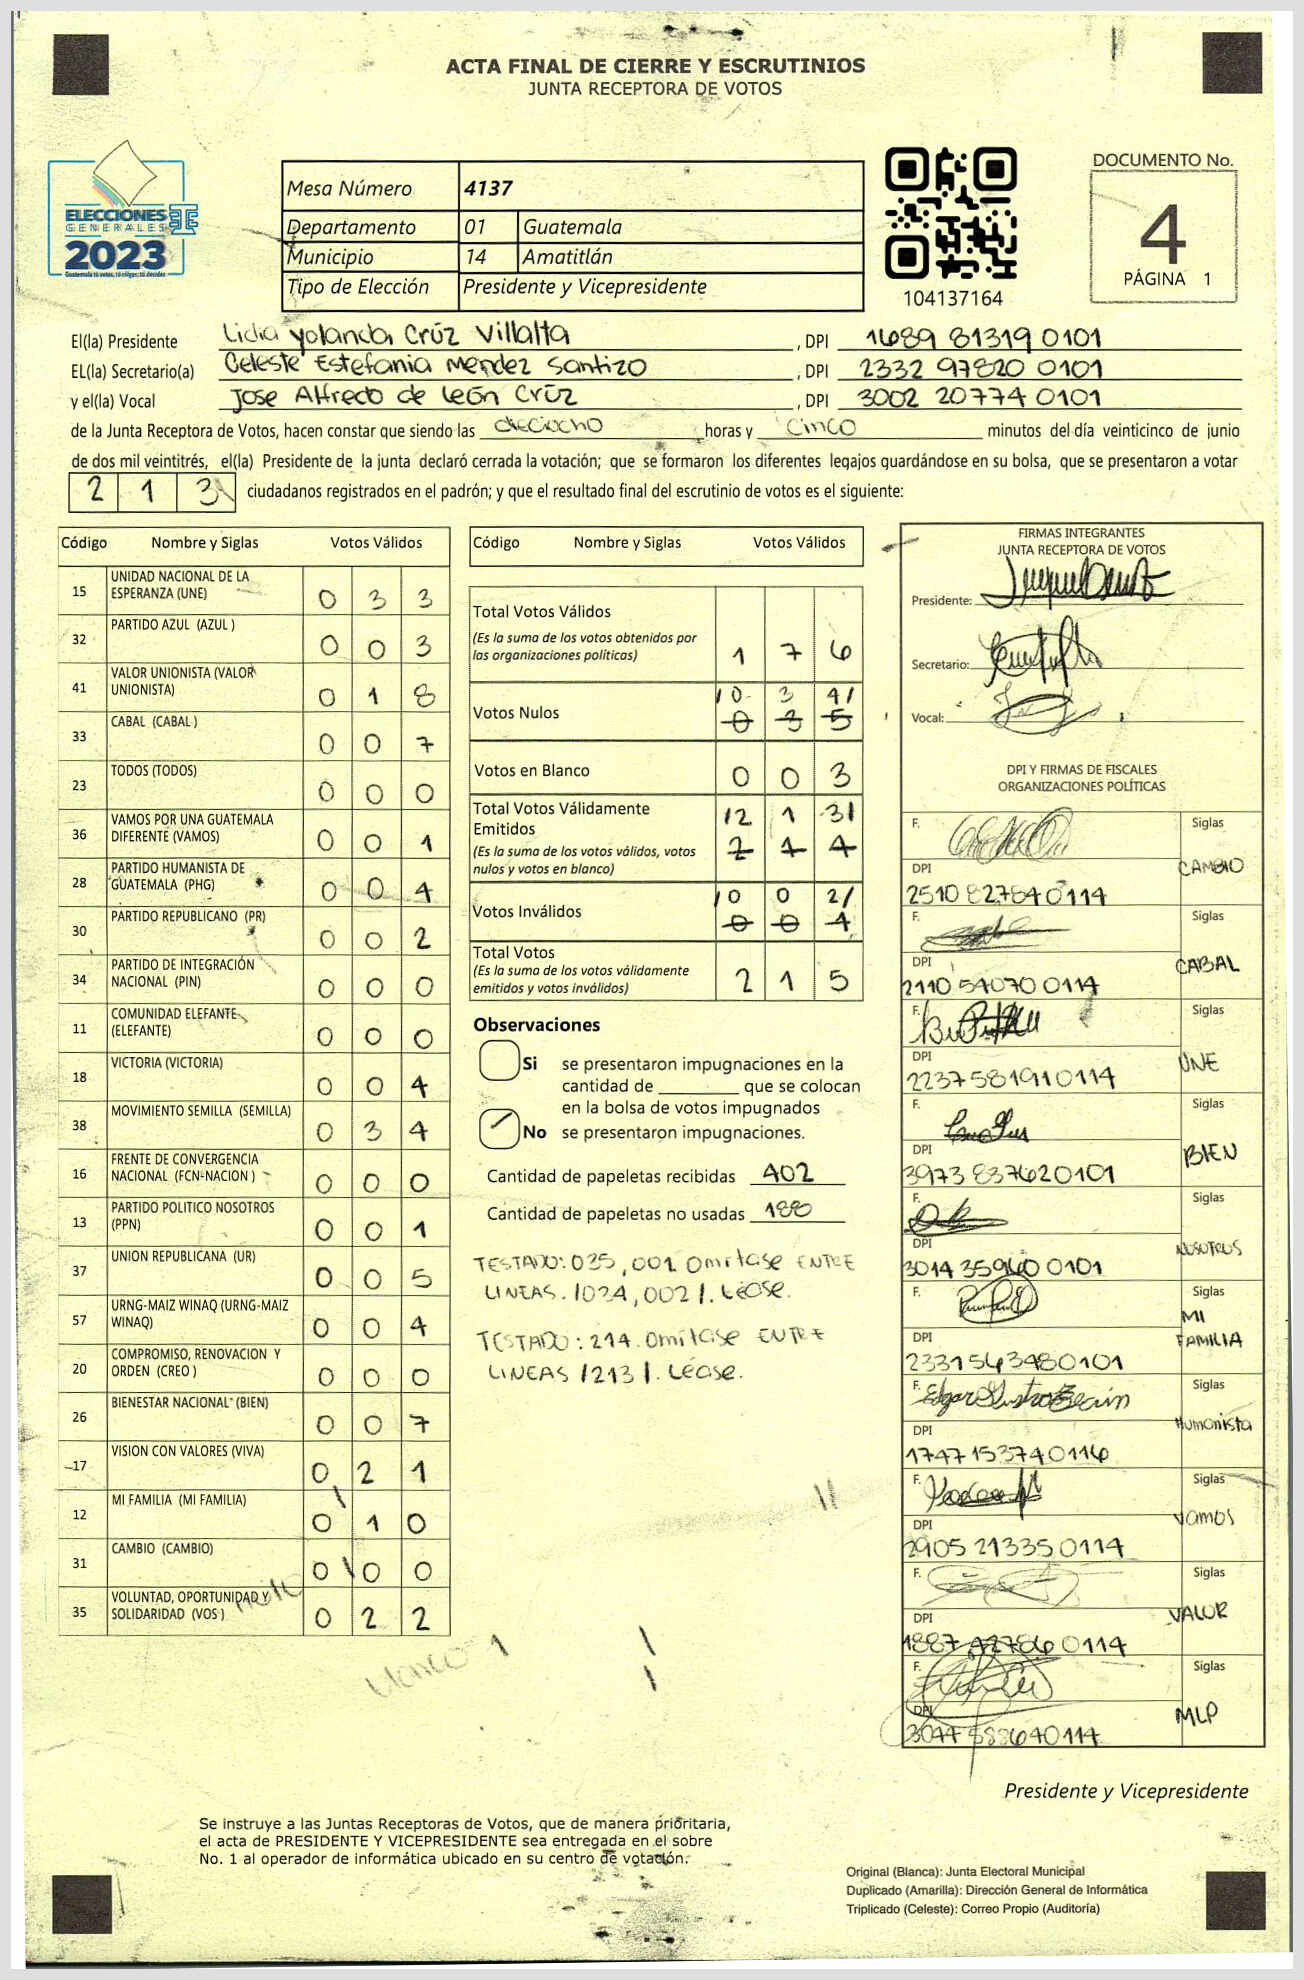 ACTA FINAL DE CIERRE Y ESCRUTINIOS
JUNTA RECEPTORA DE VOTOS
ELECCIONES
GENERALES
2023
Guatemala tú votas, tú eliges, tú decides
Mesa Número 4137
Departamento 01 Guatemala
Municipio 14 Amatitlán
Tipo de Elección Presidente y Vicepresidente
104137164
DOCUMENTO No.
4
PÁGINA 1
El(la) Presidente Lidia Yolanda Crúz Villalta , DPI 1689 81319 0101
EL(la) Secretario(a) Celeste Estefania Mendez Santizo , DPI 2332 97820 0101
y el(la) Vocal Jose Alfredo de León Crúz , DPI 3002 20774 0101
de la Junta Receptora de Votos, hacen constar que siendo las dieciocho horas y cinco minutos del día veinticinco de junio
de dos mil veintitrés, el(la) Presidente de la junta declaró cerrada la votación; que se formaron los diferentes legajos guardándose en su bolsa, que se presentaron a votar
2 1 3 ciudadanos registrados en el padrón; y que el resultado final del escrutinio de votos es el siguiente:
Código Nombre y Siglas Votos Válidos
15 UNIDAD NACIONAL DE LA ESPERANZA (UNE) 0 3 3
32 PARTIDO AZUL (AZUL ) 0 0 3
41 VALOR UNIONISTA (VALOR UNIONISTA) 0 1 8
33 CABAL (CABAL ) 0 0 7
23 TODOS (TODOS) 0 0 0
36 VAMOS POR UNA GUATEMALA DIFERENTE (VAMOS) 0 0 1
28 PARTIDO HUMANISTA DE GUATEMALA (PHG) 0 0 4
30 PARTIDO REPUBLICANO (PR) 0 0 2
34 PARTIDO DE INTEGRACIÓN NACIONAL (PIN) 0 0 0
11 COMUNIDAD ELEFANTE (ELEFANTE) 0 0 0
18 VICTORIA (VICTORIA) 0 0 4
38 MOVIMIENTO SEMILLA (SEMILLA) 0 3 4
16 FRENTE DE CONVERGENCIA NACIONAL (FCN-NACION ) 0 0 0
13 PARTIDO POLITICO NOSOTROS (PPN) 0 0 1
37 UNION REPUBLICANA (UR) 0 0 5
57 URNG-MAIZ WINAQ (URNG-MAIZ WINAQ) 0 0 4
20 COMPROMISO, RENOVACION Y ORDEN (CREO ) 0 0 0
26 BIENESTAR NACIONAL (BIEN) 0 0 7
17 VISION CON VALORES (VIVA) 0 2 1
12 MI FAMILIA (MI FAMILIA) 0 1 0
31 CAMBIO (CAMBIO) 0 0 0
35 VOLUNTAD, OPORTUNIDAD Y SOLIDARIDAD (VOS ) 0 2 2
blanco 1
Código Nombre y Siglas Votos Válidos
Total Votos Válidos
(Es la suma de los votos obtenidos por
las organizaciones políticas) 1 7 6
/0 3 4/
Votos Nulos 0 3 5
Votos en Blanco 0 0 3
Total Votos Válidamente /2 1 3/
Emitidos
(Es la suma de los votos válidos, votos 2 1 4
nulos y votos en blanco)
/0 0 2/
Votos Inválidos 0 0 1
Total Votos
(Es la suma de los votos válidamente
emitidos y votos inválidos) 2 1 5
Observaciones
Si se presentaron impugnaciones en la
cantidad de ________ que se colocan
en la bolsa de votos impugnados
No se presentaron impugnaciones.
Cantidad de papeletas recibidas 402
Cantidad de papeletas no usadas 188
TESTADO: 035, 001 Omitase ENTRE
LINEAS. /034, 002/. Léase.
TESTADO: 214. Omitase ENTRE
LINEAS /213/. Léase.
FIRMAS INTEGRANTES
JUNTA RECEPTORA DE VOTOS
Presidente:
Secretario:
Vocal:
DPI Y FIRMAS DE FISCALES
ORGANIZACIONES POLÍTICAS
F. Siglas
DPI CAMBIO
2510 82784 0114
F. Siglas
DPI CABAL
2110 54070 0114
F. Siglas
DPI UNE
2237 58191 0114
F. Siglas
DPI BIEN
3973 83762 0101
F. Siglas
DPI NOSOTROS
3014 35960 0101
F. Siglas
MI
DPI FAMILIA
2331 56348 0101
F. Siglas
DPI Humanista
1747 15374 0116
F. Siglas
DPI Vamos
2905 21335 0114
F. Siglas
DPI VALOR
1887 42786 0114
F. Siglas
DPI MLP
3044 58864 0114
Presidente y Vicepresidente
Se instruye a las Juntas Receptoras de Votos, que de manera prioritaria,
el acta de PRESIDENTE Y VICEPRESIDENTE sea entregada en el sobre
No. 1 al operador de informática ubicado en su centro de votación.
Original (Blanca): Junta Electoral Municipal
Duplicado (Amarilla): Dirección General de Informática
Triplicado (Celeste): Correo Propio (Auditoría)